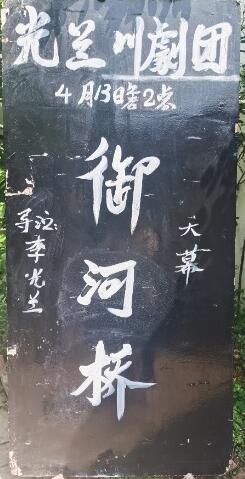 光兰川劇团
4月13日 2点
大幕
御河桥
导演李光兰